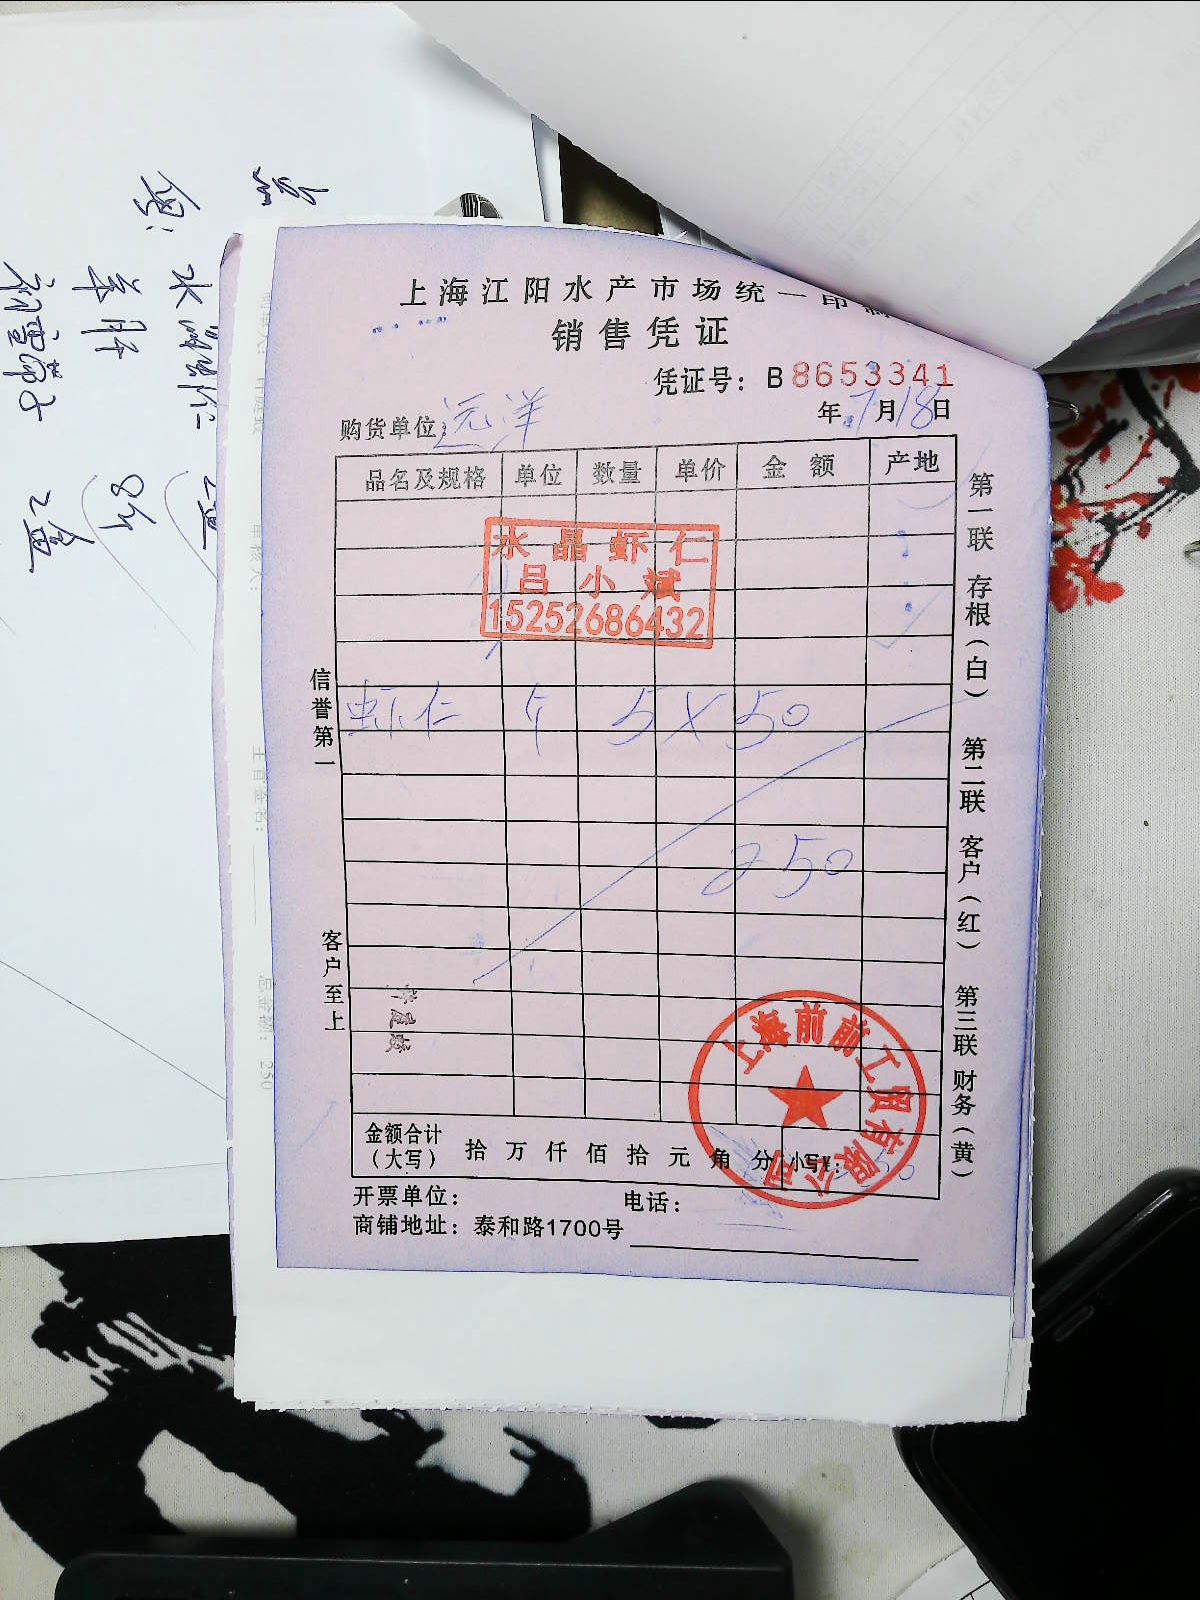 上海江阳水产市场统一印
销售凭证
凭证号：B8653341
年7月18日
购货单位：远洋
品名及规格 单位 数量 单价 金额 产地
水晶虾仁
吕小斌
15252686432
虾仁 斤 5×50
250
信誉第一
客户至上
第一联 存根（白） 第二联 客户（红） 第三联 财务（黄）
上海前前工贸有限公司
金额合计
（大写） 拾万仟佰拾元角分 小写¥：250
开票单位： 电话：
商铺地址：泰和路1700号
总金额：250
主管签名：
水晶虾仁